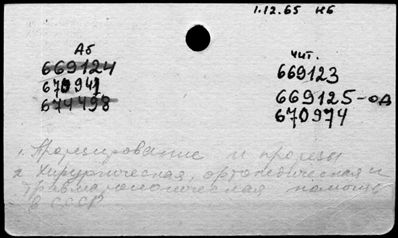 1.12.65 НБ
Аб
669124
670947
674498
чит.
669123
669125-од
670974
1. Протезирование и протезы
2. Хирургическая, ортопедическая и
травматологическая помощь
в СССР